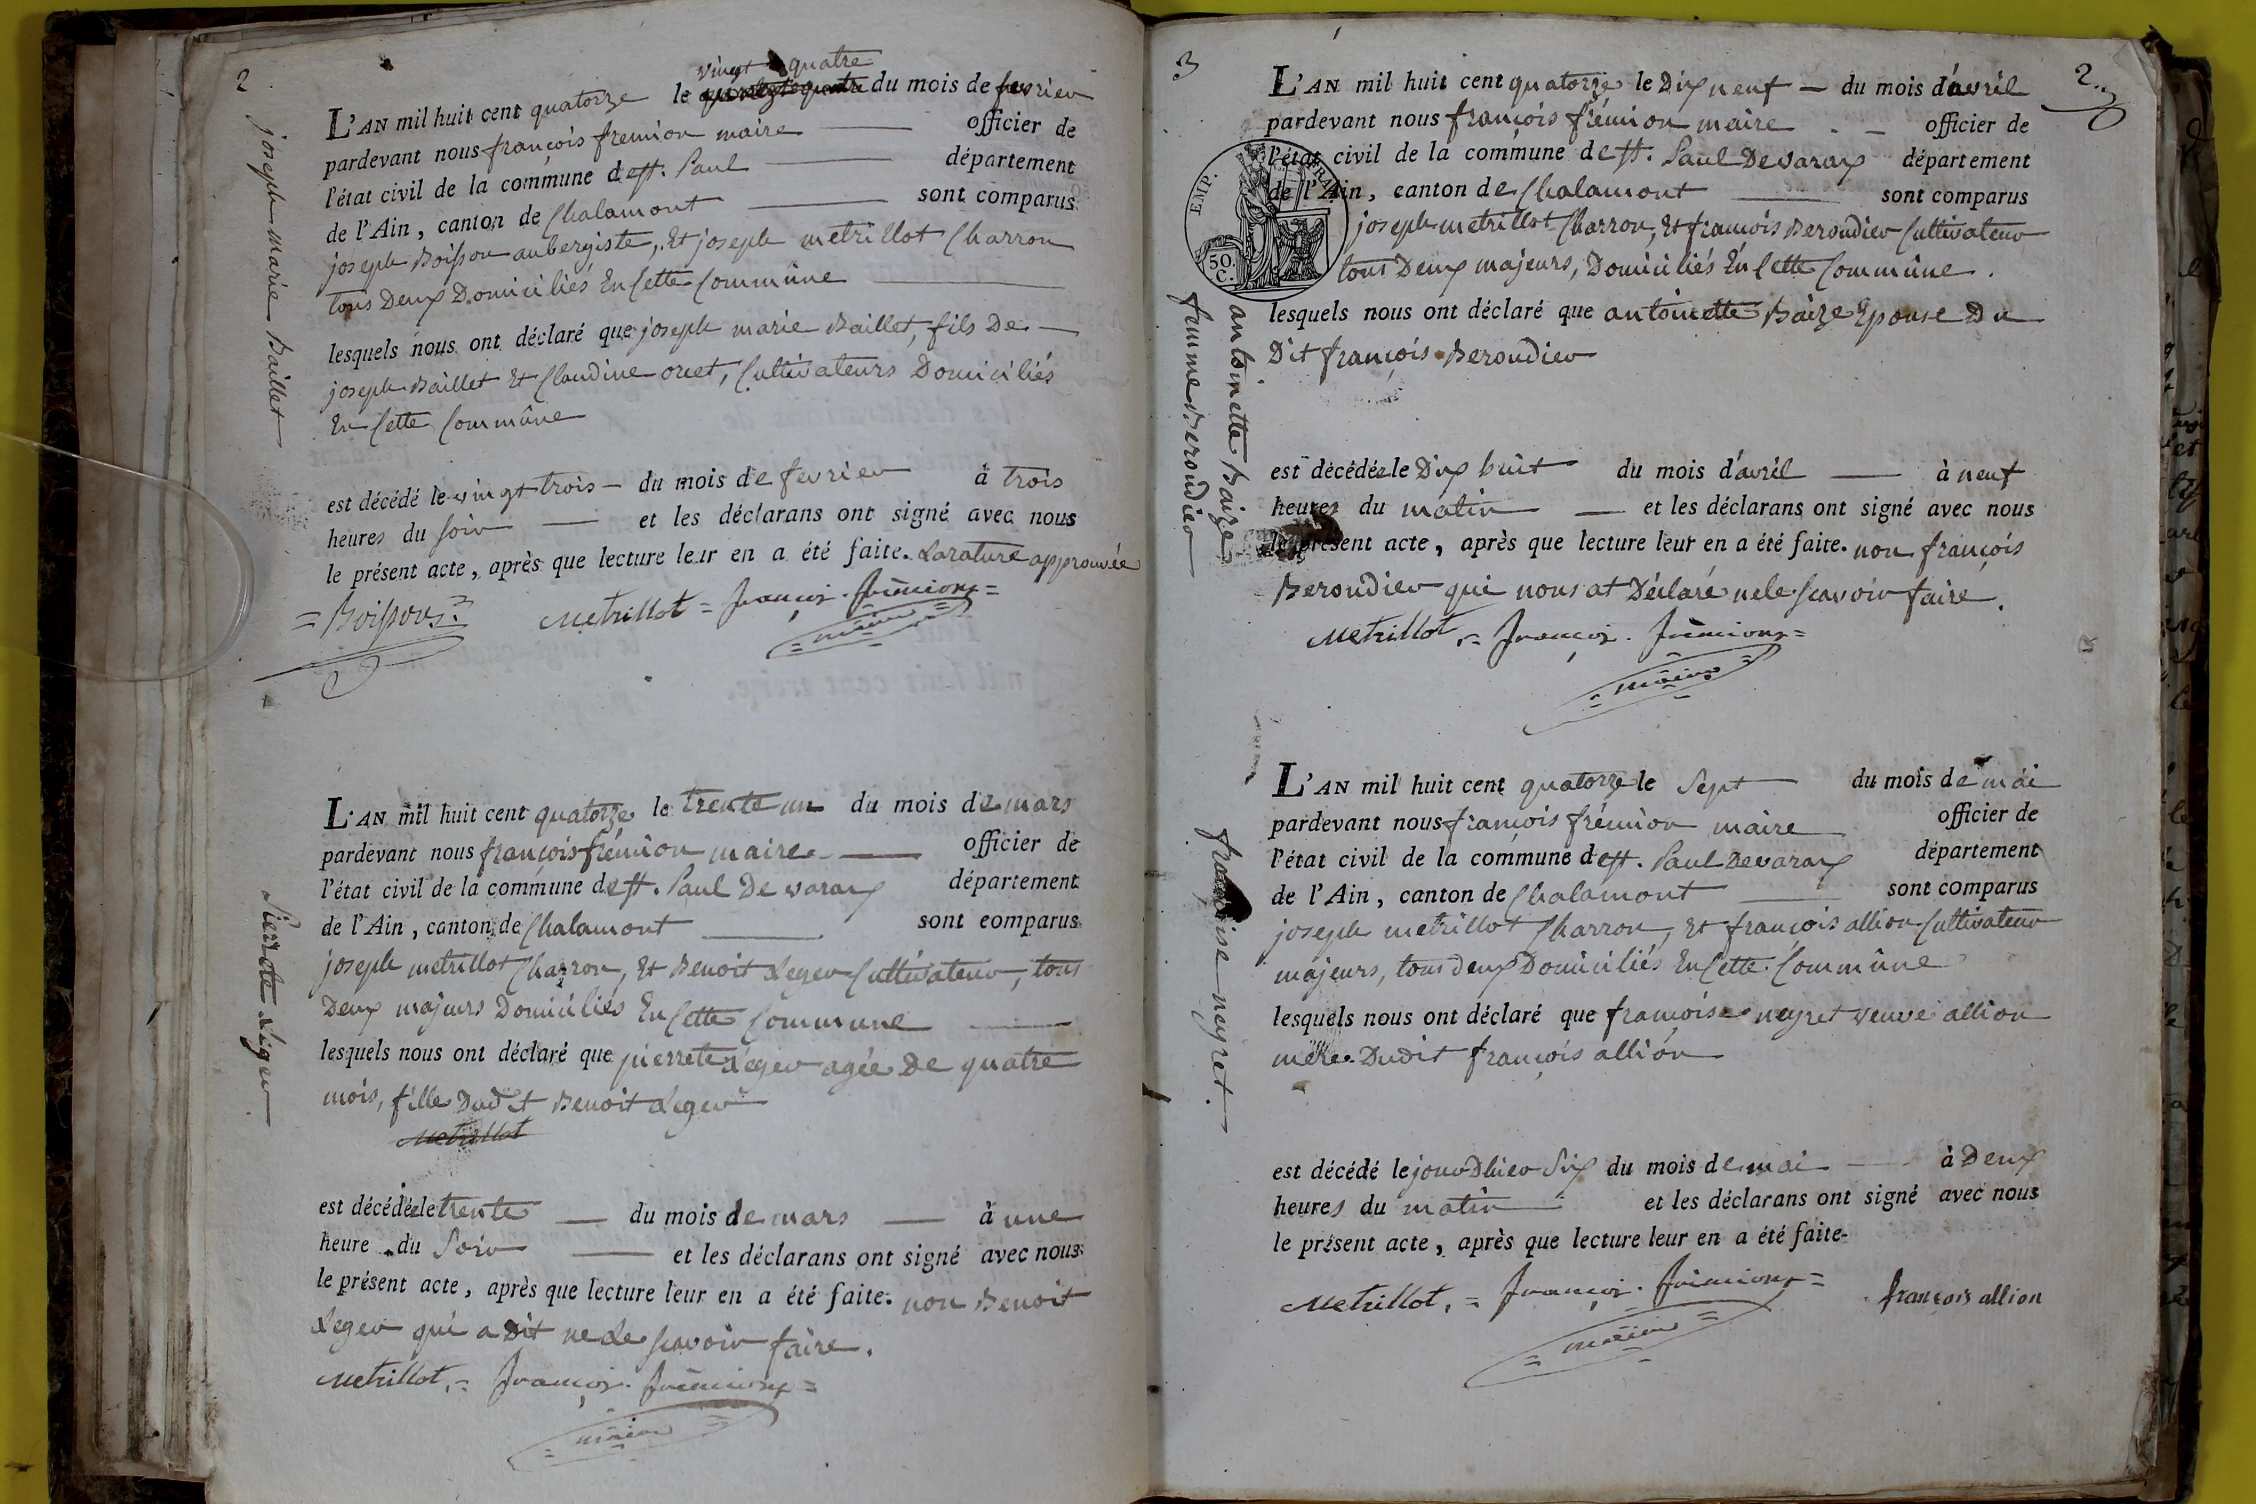 2
vingt quatre
L'AN mil huit cent quatorze le du mois de fevrier
pardevant nous françois frémion maire officier de
l'état civil de la commune de st. Paul département
de l'Ain, canton de Chalamont sont comparus
joseph Boisson aubergiste, Et joseph metrillot Charron
tous Deux Domiciliés En Cette Commune
lesquels nous ont déclaré que joseph marie Baillet, fils De
joseph Baillet Et Claudine oret, Cultivateurs Domiciliés
En Cette Commune
est décédé le vingt trois du mois de fevrier à trois
heures du soir et les déclarans ont signé avec nous
le présent acte, après que lecture leur en a été faite. La rature approuvée
= Boisson Metrillot = françois. frémion =
= maire =
joseph marie Baillet
L'AN mil huit cent quatorze le trente un du mois de mars
pardevant nous françois frémion maire officier de
l'état civil de la commune de st. Paul De varax département
de l'Ain, canton de Chalamont sont comparus
joseph metrillot Charron, Et Benoit Leger Cultivateur, tous
Deux majeurs Domiciliés En Cette Commune
lesquels nous ont déclaré que pierrete Leger agée De quatre
mois, fille Dudit Benoit Leger
Metrillot
est décédée le trente du mois de mars à une
heure du Soir et les déclarans ont signé avec nous
le présent acte, après que lecture leur en a été faite. non Benoit
Leger qui a Dit ne Le scavoir faire.
Metrillot, = françois. frémion =
= maire =
Pierrete Leger
3
2
L'AN mil huit cent quatorze le Dix neuf du mois d'avril
pardevant nous françois frémion maire officier de
l'état civil de la commune de st. Paul De varax département
de l'Ain, canton de Chalamont sont comparus
joseph metrillot Charron, Et françois Beroudier Cultivateur
tous Deux majeurs, Domiciliés En Cette Commune.
EMP. FRAN
50. C.
lesquels nous ont déclaré que antoinette Baize Epouse Du
Dit françois Beroudier
est décédée le Dix huit du mois d'avril à neuf
heures du matin et les déclarans ont signé avec nous
le présent acte, après que lecture leur en a été faite. non françois
Beroudier qui nous at Déclaré ne le scavoir faire.
Metrillot, = françois. frémion =
= maire =
antoinette Baize
femme Beroudier
L'AN mil huit cent quatorze le Sept du mois de mai
pardevant nous françois frémion maire officier de
l'état civil de la commune de st. Paul De varax département
de l'Ain, canton de Chalamont sont comparus
joseph metrillot Charron, Et françois allion Cultivateur
majeurs, tous deux Domiciliés En Cette Commune
lesquels nous ont déclaré que françoise neyret veuve allion
mere Dudit françois allion
est décédé le jour D'hier Six du mois de mai à Deux
heures du matin et les déclarans ont signé avec nous
le présent acte, après que lecture leur en a été faite.
Metrillot, = françois. frémion = françois allion
= maire =
françoise neyret.